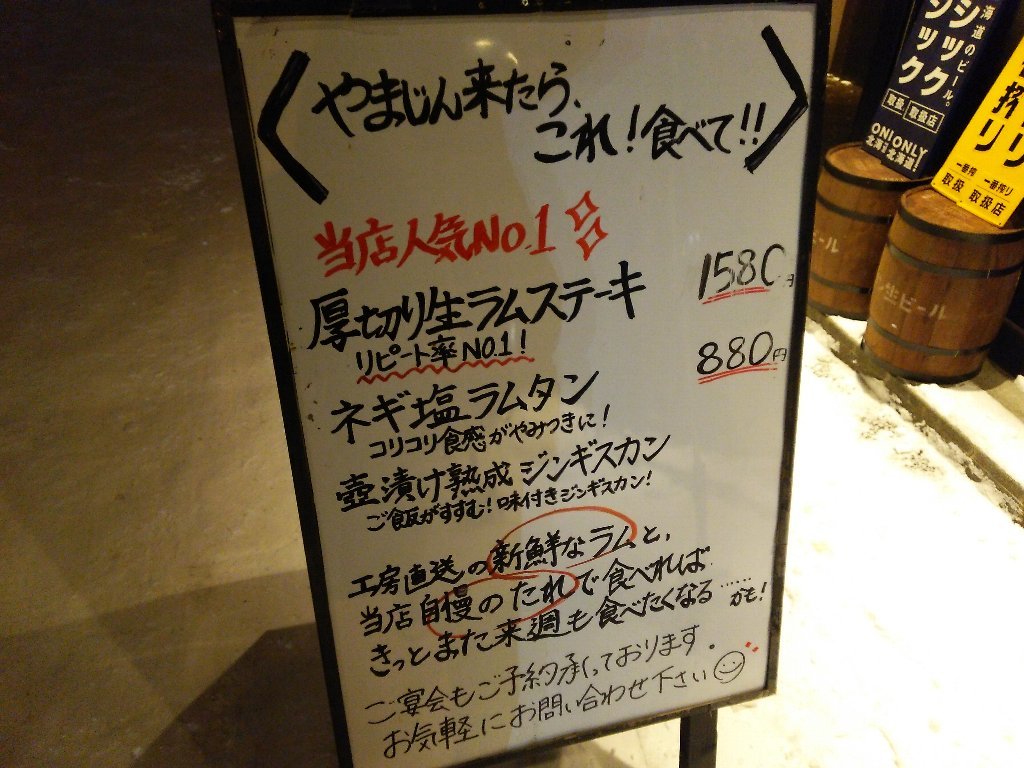 やまじん来たら、
これ！食べて!!
当店人気No.1
厚切り生ラムステーキ 1580円
リピート率NO.1！
ネギ塩ラムタン 880円
コリコリ食感がやみつきに！
壺漬け熟成ジンギスカン
ご飯がすすむ！味付きジンギスカン！
工房直送の新鮮なラムと、
当店自慢のたれで食べれば
きっとまた来週も食べたくなる……かも！
ご宴会もご予約承っております。
お気軽にお問い合わせ下さい
海道のビール。
シック
シック
取扱 取扱店
ONLY
北海道
搾り
一番搾り
取扱 取扱店
ビール
生ビール